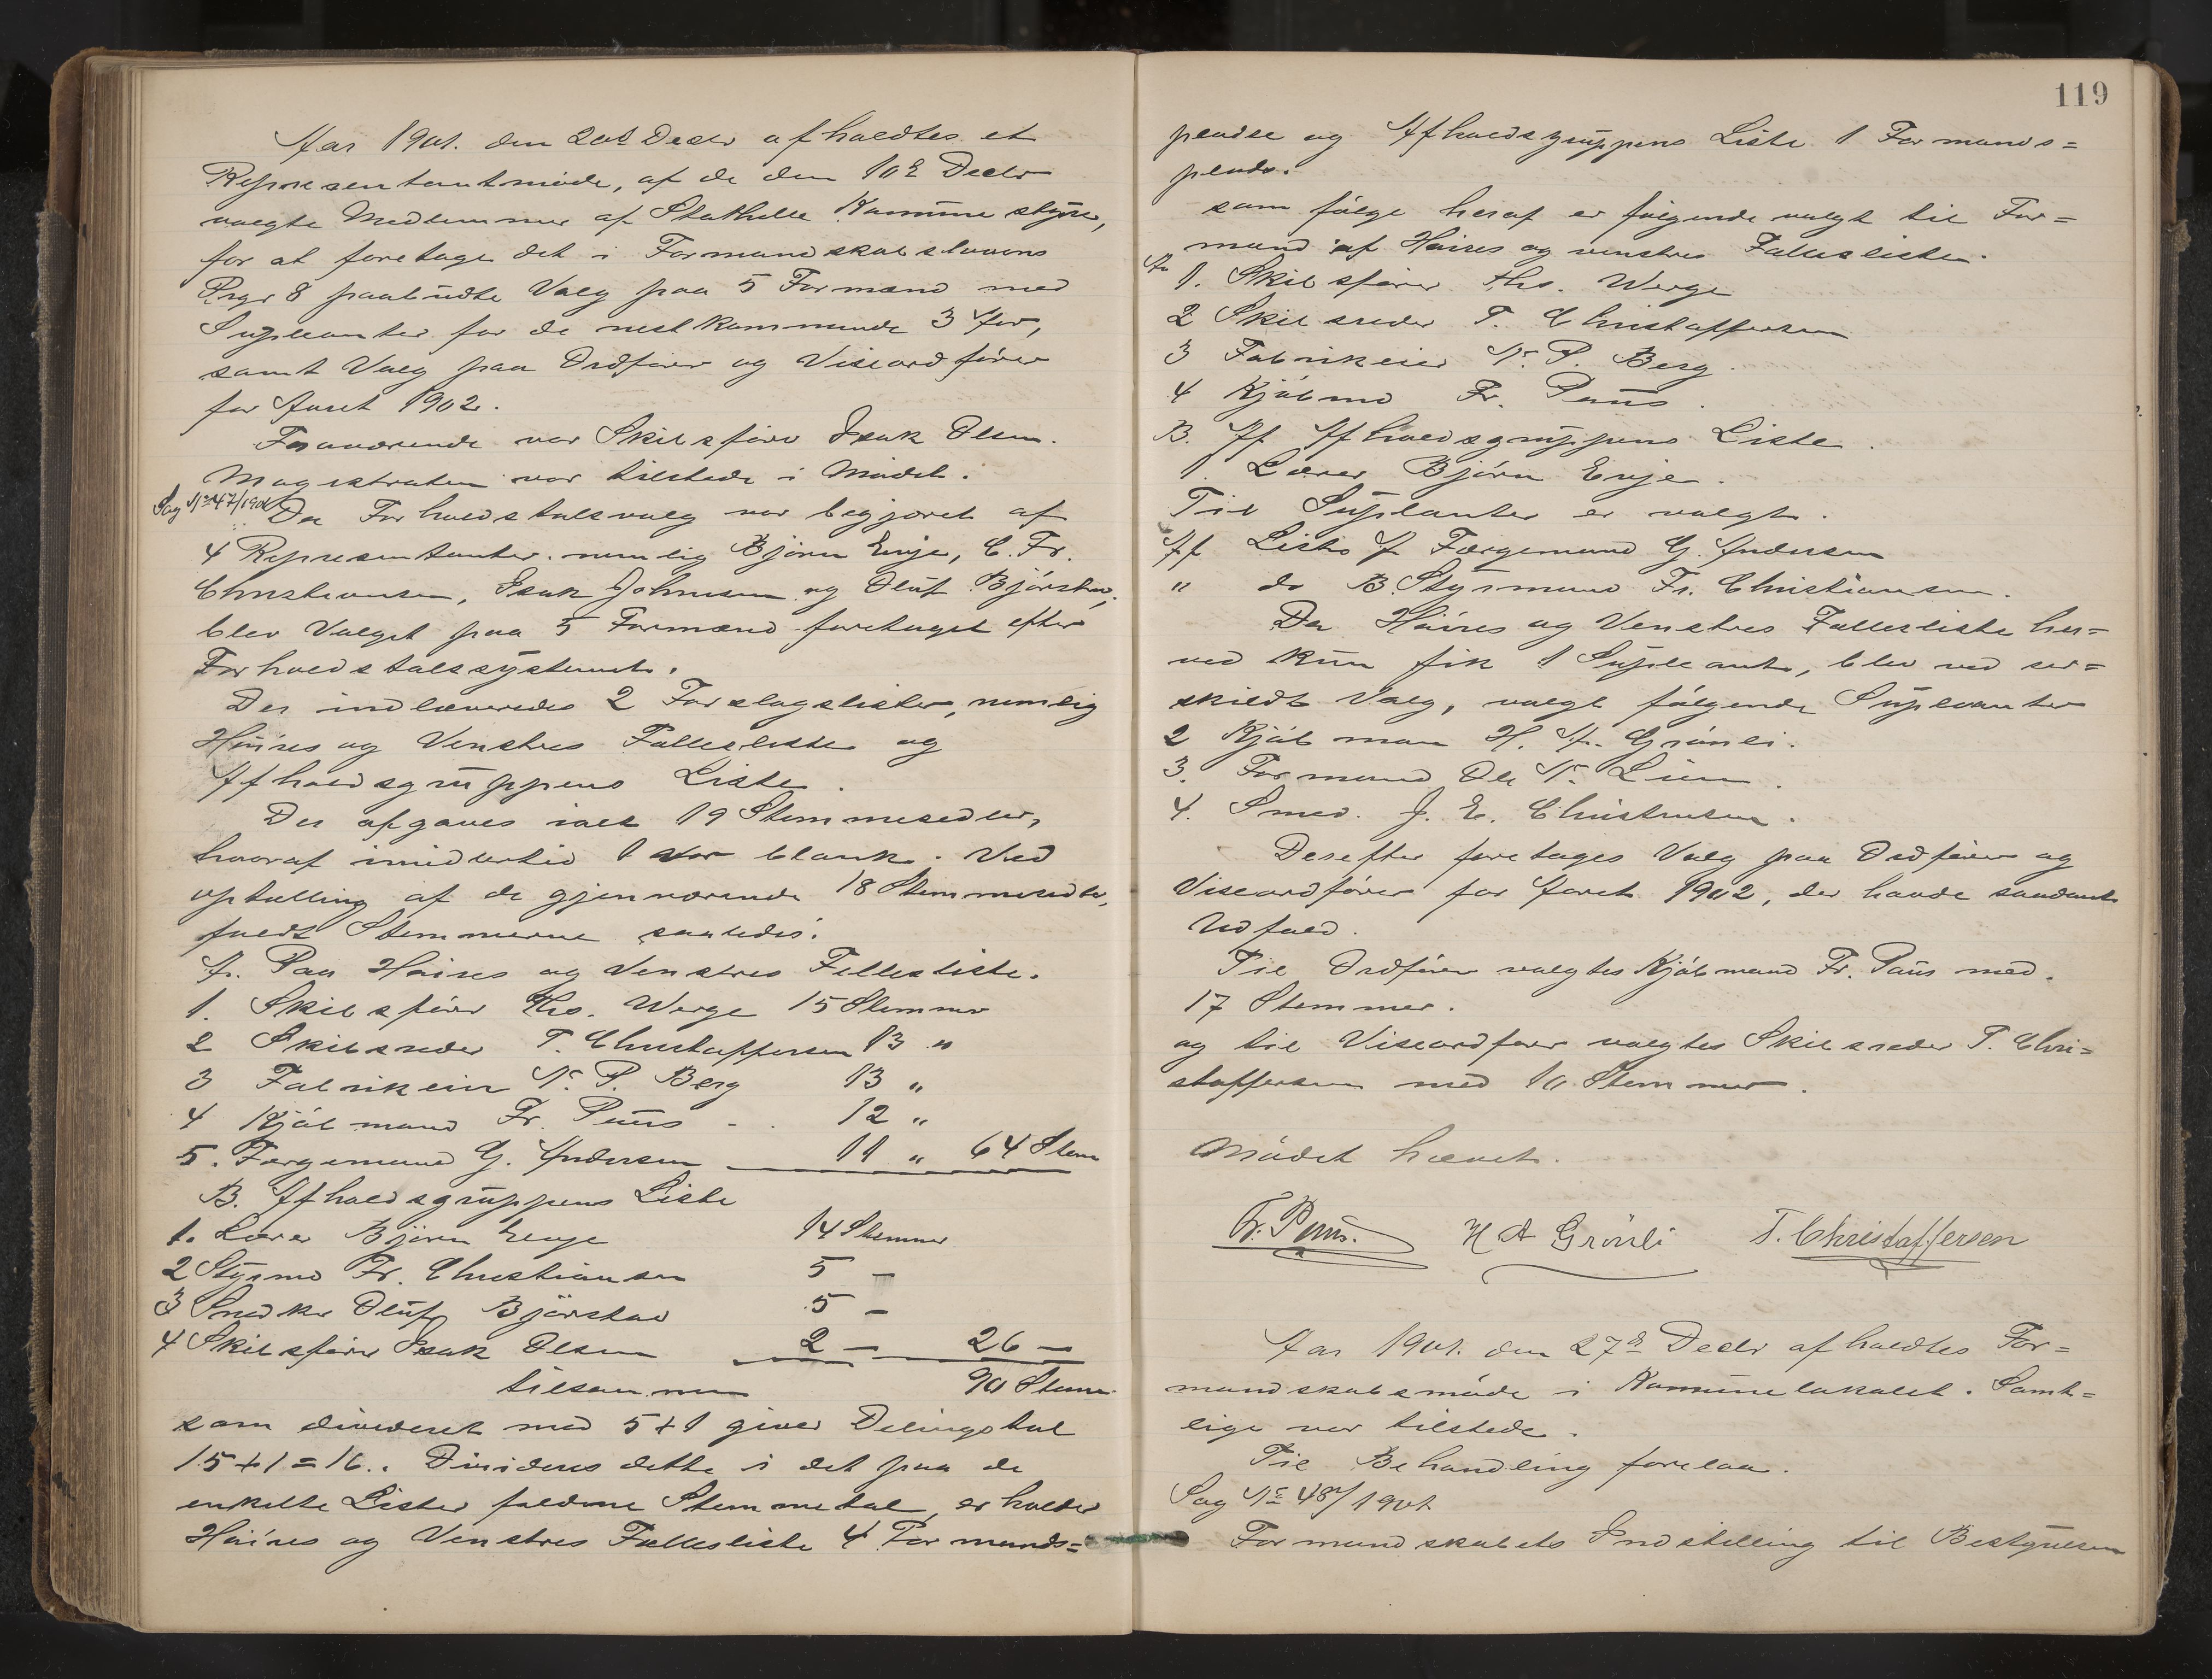 Aar 1901. den 20de Decbr afholdtes et
Representantmøde, af de den 10de Decbr
valgte Medlemmer af Stathelle Komune styre,
for at foretage det i Formandskabslovens
Prgr 8 paabudte Valg paa 5 Formænd med
Supleanter for de nestkommende 3 Aar,
samt Valg paa Ordfører og Viseordfører
for Aaret 1902.
Fraværende var Skibsfører Isak Olsen.
Magistraten var tilstede i Mødet.
Sag No 47/1901 Da Forholdstalsvalg var begjæret af
4 Representanter. nemlig Bjørn Enje, C. Fr.
Christiansen, Isak Johnsen og Oluf Bjørstad,
blev Valget paa 5 Formænd foretaget efter
Forholdstalssystemet.
Der indleveredes 2 Forslagslister, nemlig
Høires og Venstres Fællesliste og
Afholdsgruppens Liste.
Der afgaves ialt 19 Stemmesedler,
hvoraf imidlertid 1 var blank. Ved
optælling af de gjenværende 18 Stemmesedler,
faldt Stemmerne saaledes:
A. Paa Høires og Venstres Fellesliste.
1. Skibsfører Ths. Werge 15 Stemmer
2 Skibsreder T. Christoffersen 13 "
3 Fabrikeier N. P. Berg 13 "
4 Kjøbmand Fr. Paus - . 12 "
5. Færgemand G. Andersen 11 " 64 Stem
B. Afholdsgruppens Liste
1. Lærer Bjørn Enje 14 Stemmer
2 Styrmd Fr. Christiansen 5 -
3 Snedker Oluf Bjørstad 5 -
4 Skibsfører Isak Olsen 2 - 26 -
tilsammen 90 Stemr
som divideret med 5+1 giver Delingstal
15+1=16.. Divideres dette i det paa de
enkelte Lister faldne Stemmetal, erholder
Høires og Venstres Fællesliste 4 Formands=
119
pladse og Afholdsgruppens Liste 1 Formands=
plads.
som følge heraf er følgende valgt til For=
mænd af Høires og venstres Fælleslisten.
A. 1. Skibsfører Ths. Werge
2 Skibsreder T. Christoffersen
3 Fabrikeier N. P. Berg.
4 Kjøbmd Fr. Paus.
B. Af Afholdsgruppens Liste.
1. Lærer Bjørn Enje.
Til Suplanter er valgt.
Af Liste A Færgemand G. Andersen
" do B. Styrmand Fr. Christiansen.
Da Høires og Venstres Fællesliste her=
ved kun fik 1 Supleant, blev ved sær=
skildt Valg, valgt følgende Supleanter
2 Kjøbman H. A. Grønli.
3. Formand Ole N. Lien.
4. Smed. J. E. Christensen.
Derefter foretages Valg paa Ordfører og
Viseordfører for Aaret 1902, der havde saadant
Udfald.
Til Ordfører valgtes Kjøbmand Fr. Paus med.
17 Stemmer.
og til Viseordfører valgtes Skibsreder T. Chri=
stoffersen med 10 Stemmer.
Mødet hævet.
Fr. Paus. H A Grönli T. Christoffersen
Aar 1901. den 27de Decbr afholdtes For=
mandskabsmøde i Komunelokalet. Samt=
lige var tilstede.
Til Behandling forelaa.
Sag No 48/1901
Formandskabets Indstilling til Bestyrelsen